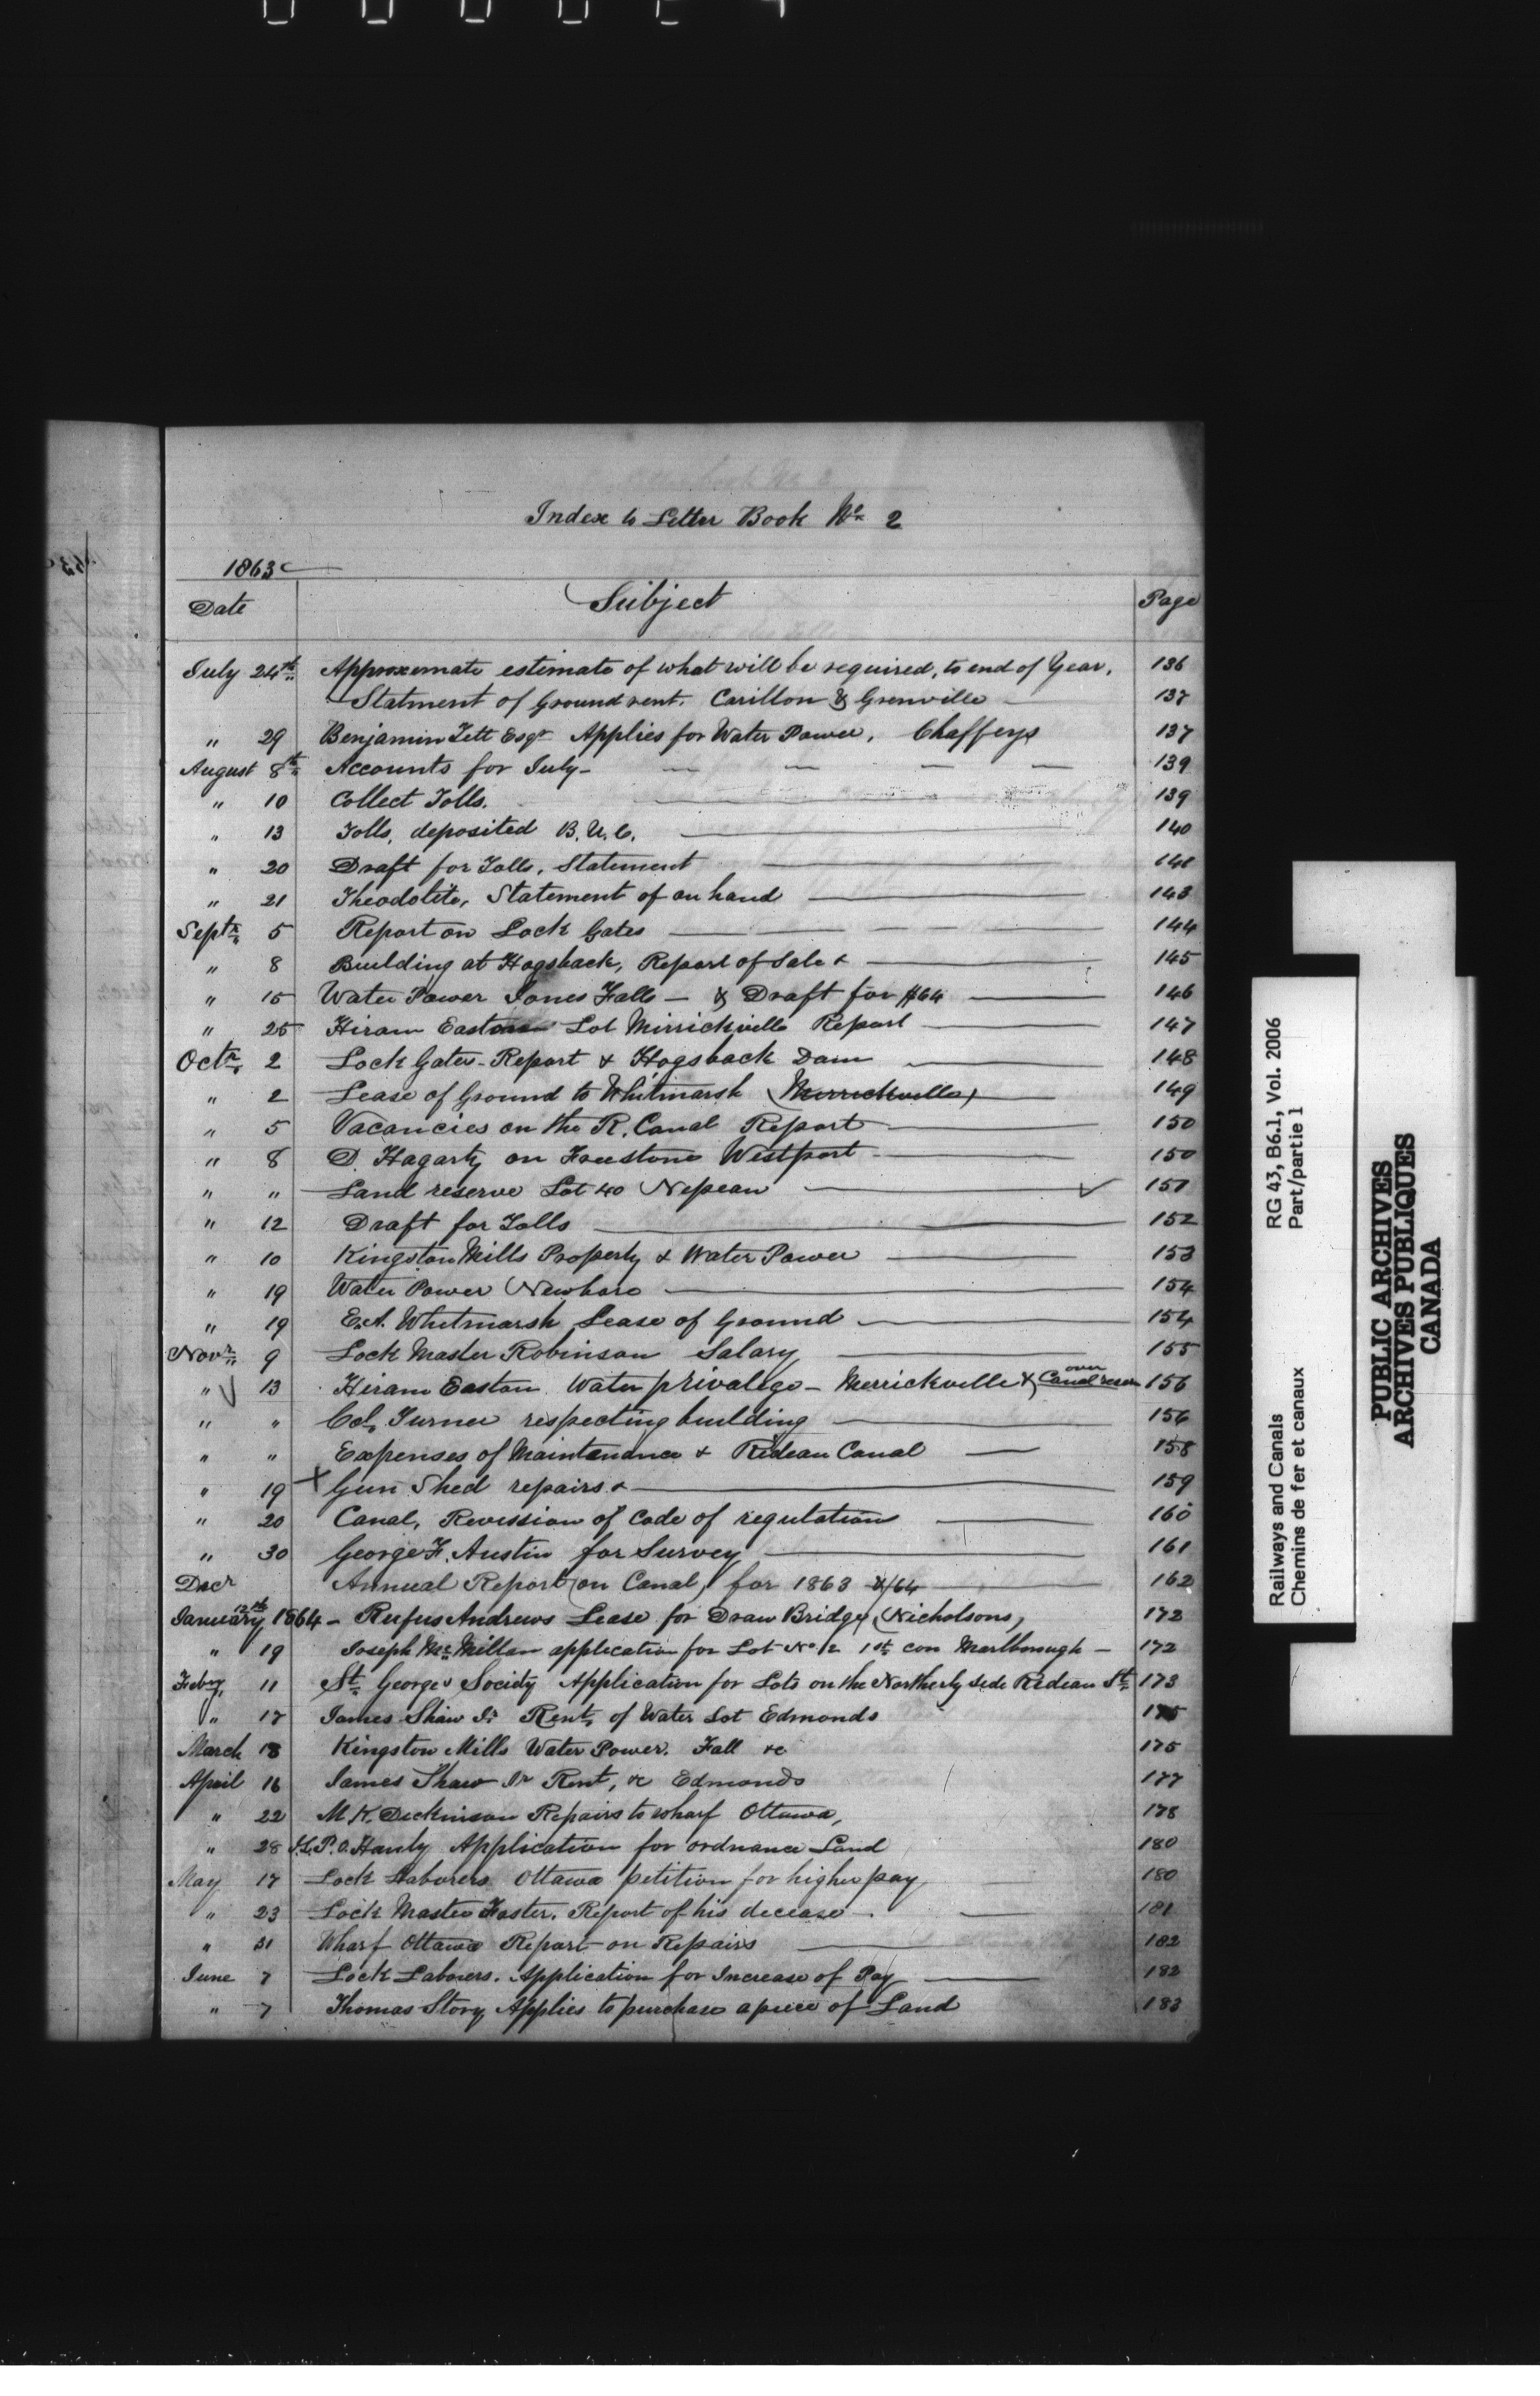 Index to Letter Book No 2
1863
Date Subject Page
July 24th Approxemate estimate of what will be required, to end of Year. 136
Statment of Ground rent. Carillon & Grenville 137
" 29 Benjamin Tett Esqr Applies for Water Power, Chafferys 137
August 8th Accounts for July 139
" 10 Collect Tolls. 139
" 13 Tolls, deposited B. U. C. 140
" 20 Draft for Tolls, Statement 141
" 21 Theodolite, Statement of on hand 143
Septr 5 Report on Lock Gates 144
" 8 Building at Hogsback, Report of Sale & 145
" 15 Water Power Jones Falls — & Draft for $64 146
" 25 Hiram Easton Lot Mirrickville Report 147
Octr 2 Lock Gates - Report & Hogsback Dam 148
" 2 Lease of Ground to Whitmarsh (Merrickville) 149
" 5 Vacancies on the R. Canal Report 150
" 8 D. Hagarty on Freestone Westport 150
" " Land reserve Lot 40 Nepean 151
" 12 Draft for Tolls 152
" 10 Kingston Mills Property & Water Power 153
" 19 Water Power Newboro 154
" 19 E.A. Whitmarsh Lease of Ground 154
Novr 9 Lock Master Robinson Salary 155
" 13 Hiram Easton Water privalege - Merrickville & over Canal reserve 156
" " Col. Turner respecting building 156
" " Expenses of Maintenance & Rideau Canal 158
" 19 Gun Shed repairs & 159
" 20 Canal, Revission of Code of regulations 160
" 30 George F. Austin for Survey 161
Decr Annual Report (on Canal) for 1863 & /64 162
January 12th 1864 - Rufus Andrews Lease for Draw Bridge (Nicholsons) 172
" 19 Joseph McMillan application for Lot No 12 1st con Marlborough - 172
Febry 11 St George's Society Application for Lots on the Northerly side Rideau St 173
" 17 James Shaw Jr Rent, of Water Lot Edmonds 175
March 18 Kingston Mills Water Power. Fall &c 175
April 16 James Shaw Jr Rent, &c Edmonds 177
" 22 M.K. Dickinson Repairs to wharf Ottawa, 178
" 28 P.O. Hanly Application for ordnance Land 180
May 17 Lock Laborers Ottawa petition for higher pay 180
" 23 Lock Master Foster. Report of his decease 181
" 31 Wharf Ottawa Report on Repairs 182
June 7 Lock Laborers. Application for Increase of Pay 182
" 7 Thomas Story Applies to purchase a piece of Land 183
Railways and Canals RG 43, B6.1, Vol. 2006
Chemins de fer et canaux Part/partie 1
PUBLIC ARCHIVES
ARCHIVES PUBLIQUES
CANADA